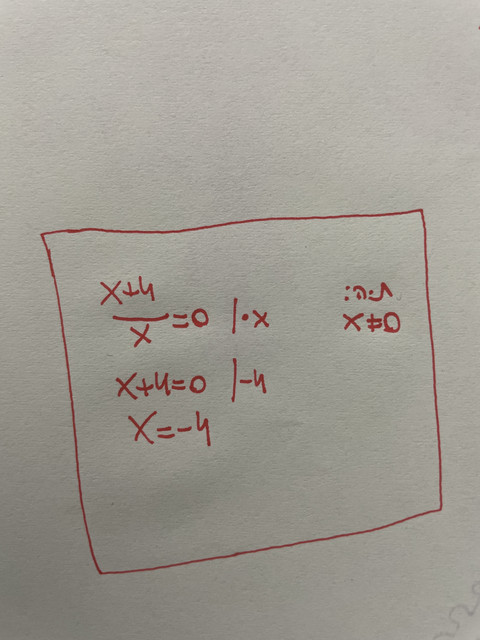 x+4
—— =0 |·x
x
x≠0
x+4=0 |-4
x=-4